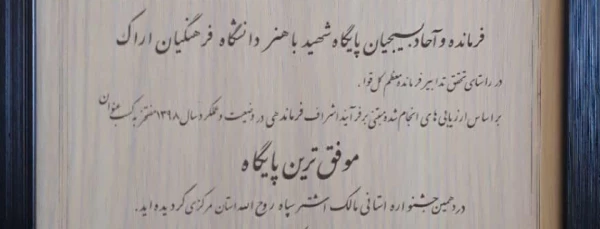 فرمانده و آحاد بسیجیان پایگاه شهید باهنر دانشگاه فرهنگیان اراک
در راستای تحقق تدابیر فرمانده معظم کل قوا،
بر اساس ارزیابی های انجام شده و مبتنی بر فرآیند اشراف فرماندهی در وضعیت و عملکرد سال ۱۳۹۸ مفتخر به کسب عنوان
موفق ترین پایگاه
در دهمین جشنواره استانی مالک اشتر سپاه روح الله استان مرکزی گردیده اید.